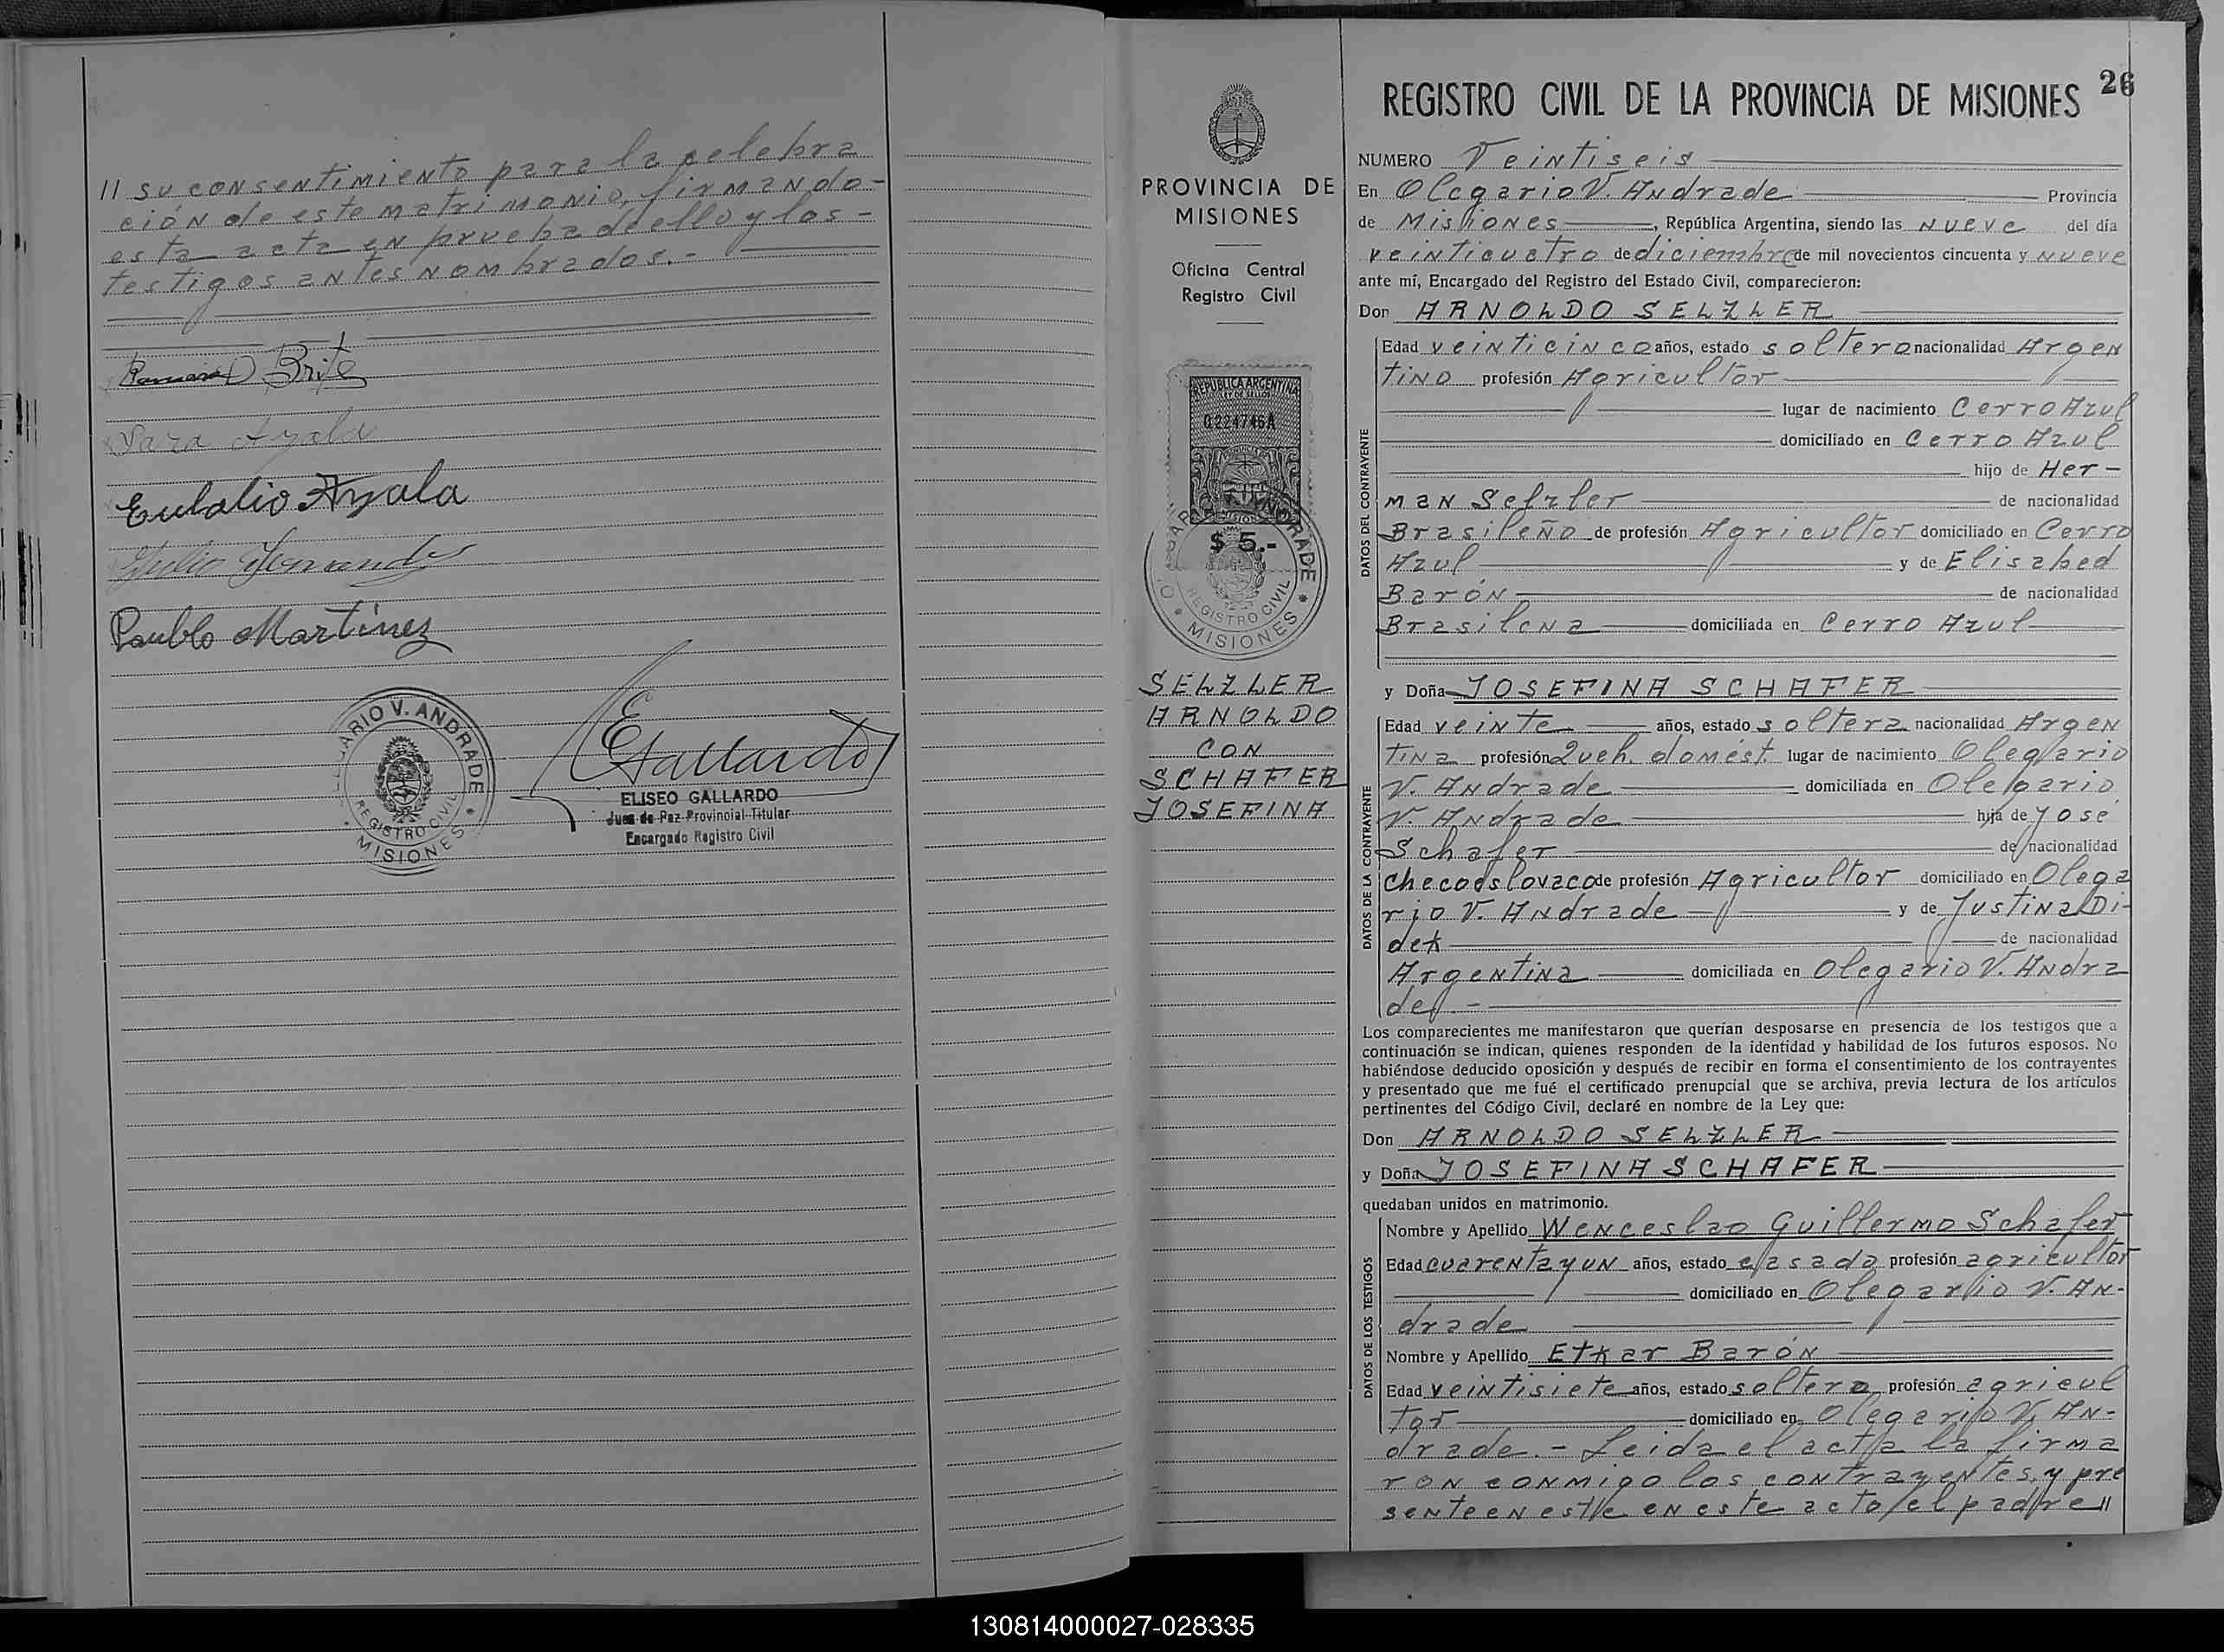 // su consentimiento para la celebra
ción de este matrimonio, firmando-
esta acta en prueba de ello y los-
testigos antes nombrados.-
Brite
Sara Ayala
Eulalio Ayala
Julio Fernandez
Paublo Martinez
OLEGARIO V. ANDRADE
REGISTRO CIVIL
* MISIONES *
EGallardo
ELISEO GALLARDO
Juez de Paz Provincial Titular
Encargado Registro Civil
PROVINCIA DE
MISIONES
Oficina Central
Registro Civil
REPUBLICA ARGENTINA
LEY DE SELLOS
0.224746A
PROVINCIA DE
MISIONES
$ 5.-
OLEGARIO V. ANDRADE
REGISTRO CIVIL
* MISIONES *
SELZLER
ARNOLDO
CON
SCHAFER
JOSEFINA
26
REGISTRO CIVIL DE LA PROVINCIA DE MISIONES
NUMERO Veintiseis
En Olegario V. Andrade Provincia
de Misiones, República Argentina, siendo las nueve del día
veinticuatro de diciembre de mil novecientos cincuenta y nueve
ante mí, Encargado del Registro del Estado Civil, comparecieron:
Don ARNOLDO SELZLER
DATOS DEL CONTRAYENTE
Edad veinticinco años, estado soltero nacionalidad Argen
tino profesión Agricultor
lugar de nacimiento Cerro Azul
domiciliado en Cerro Azul
hijo de Her-
man Selzler de nacionalidad
Brasileño de profesión Agricultor domiciliado en Cerro
Azul y de Elisabed
Barón de nacionalidad
Brasilena domiciliada en Cerro Azul
y Doña JOSEFINA SCHAFER
DATOS DE LA CONTRAYENTE
Edad veinte años, estado soltera nacionalidad Argen
tina profesión Queh. domést. lugar de nacimiento Olegario
V. Andrade domiciliada en Olegario
V. Andrade hija de José
Schafer de nacionalidad
checoeslovaco de profesión Agricultor domiciliado en Olega
rio V. Andrade y de Justina Di-
dek de nacionalidad
Argentina domiciliada en Olegario V. Andra
de.-
Los comparecientes me manifestaron que querían desposarse en presencia de los testigos que a
continuación se indican, quienes responden de la identidad y habilidad de los futuros esposos. No
habiéndose deducido oposición y después de recibir en forma el consentimiento de los contrayentes
y presentado que me fué el certificado prenupcial que se archiva, previa lectura de los artículos
pertinentes del Código Civil, declaré en nombre de la Ley que:
Don ARNOLDO SELZLER
y Doña JOSEFINA SCHAFER
quedaban unidos en matrimonio.
DATOS DE LOS TESTIGOS
Nombre y Apellido Wenceslao Guillermo Schafer
Edad cuarenta y un años, estado casada profesión agricultor
domiciliado en Olegario V. An-
drade
Nombre y Apellido Etkar Barón
Edad veintisiete años, estado soltero profesión agricul
tor domiciliado en Olegario V. An-
drade.- Leida el acta la firma
ron conmigo los contrayentes, y pre
sente en este en este acto el padre //
130814000027-028335